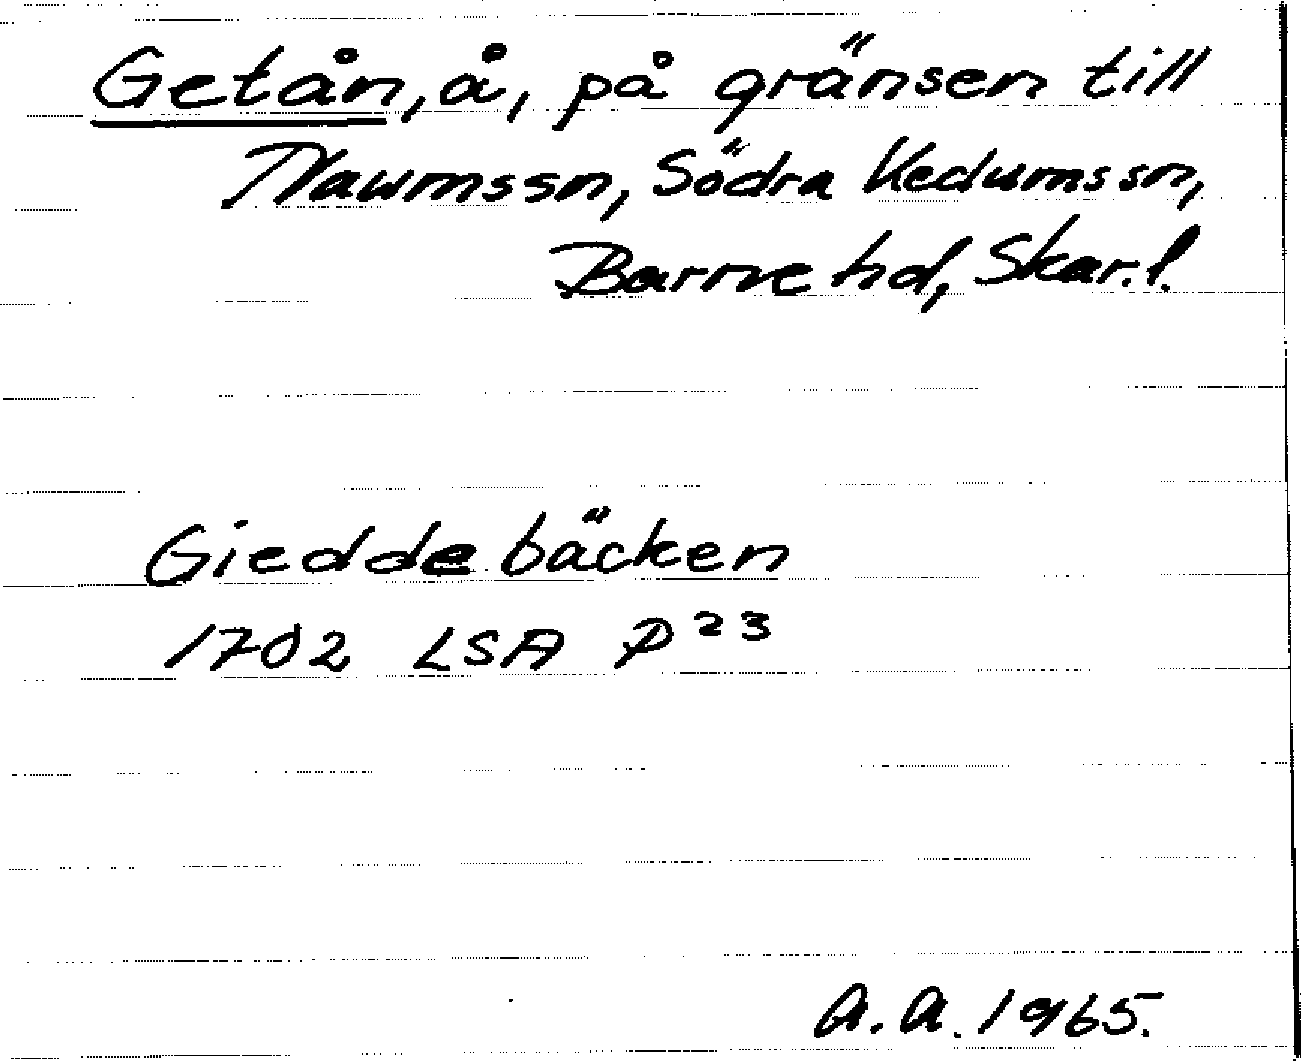 Getån, å, på gränsen till
Naumssn, Södra Kedumssn,
Barne hd, Skar. l.
Giedde bäcken
1702 LSA P 23
A. A. 1965.